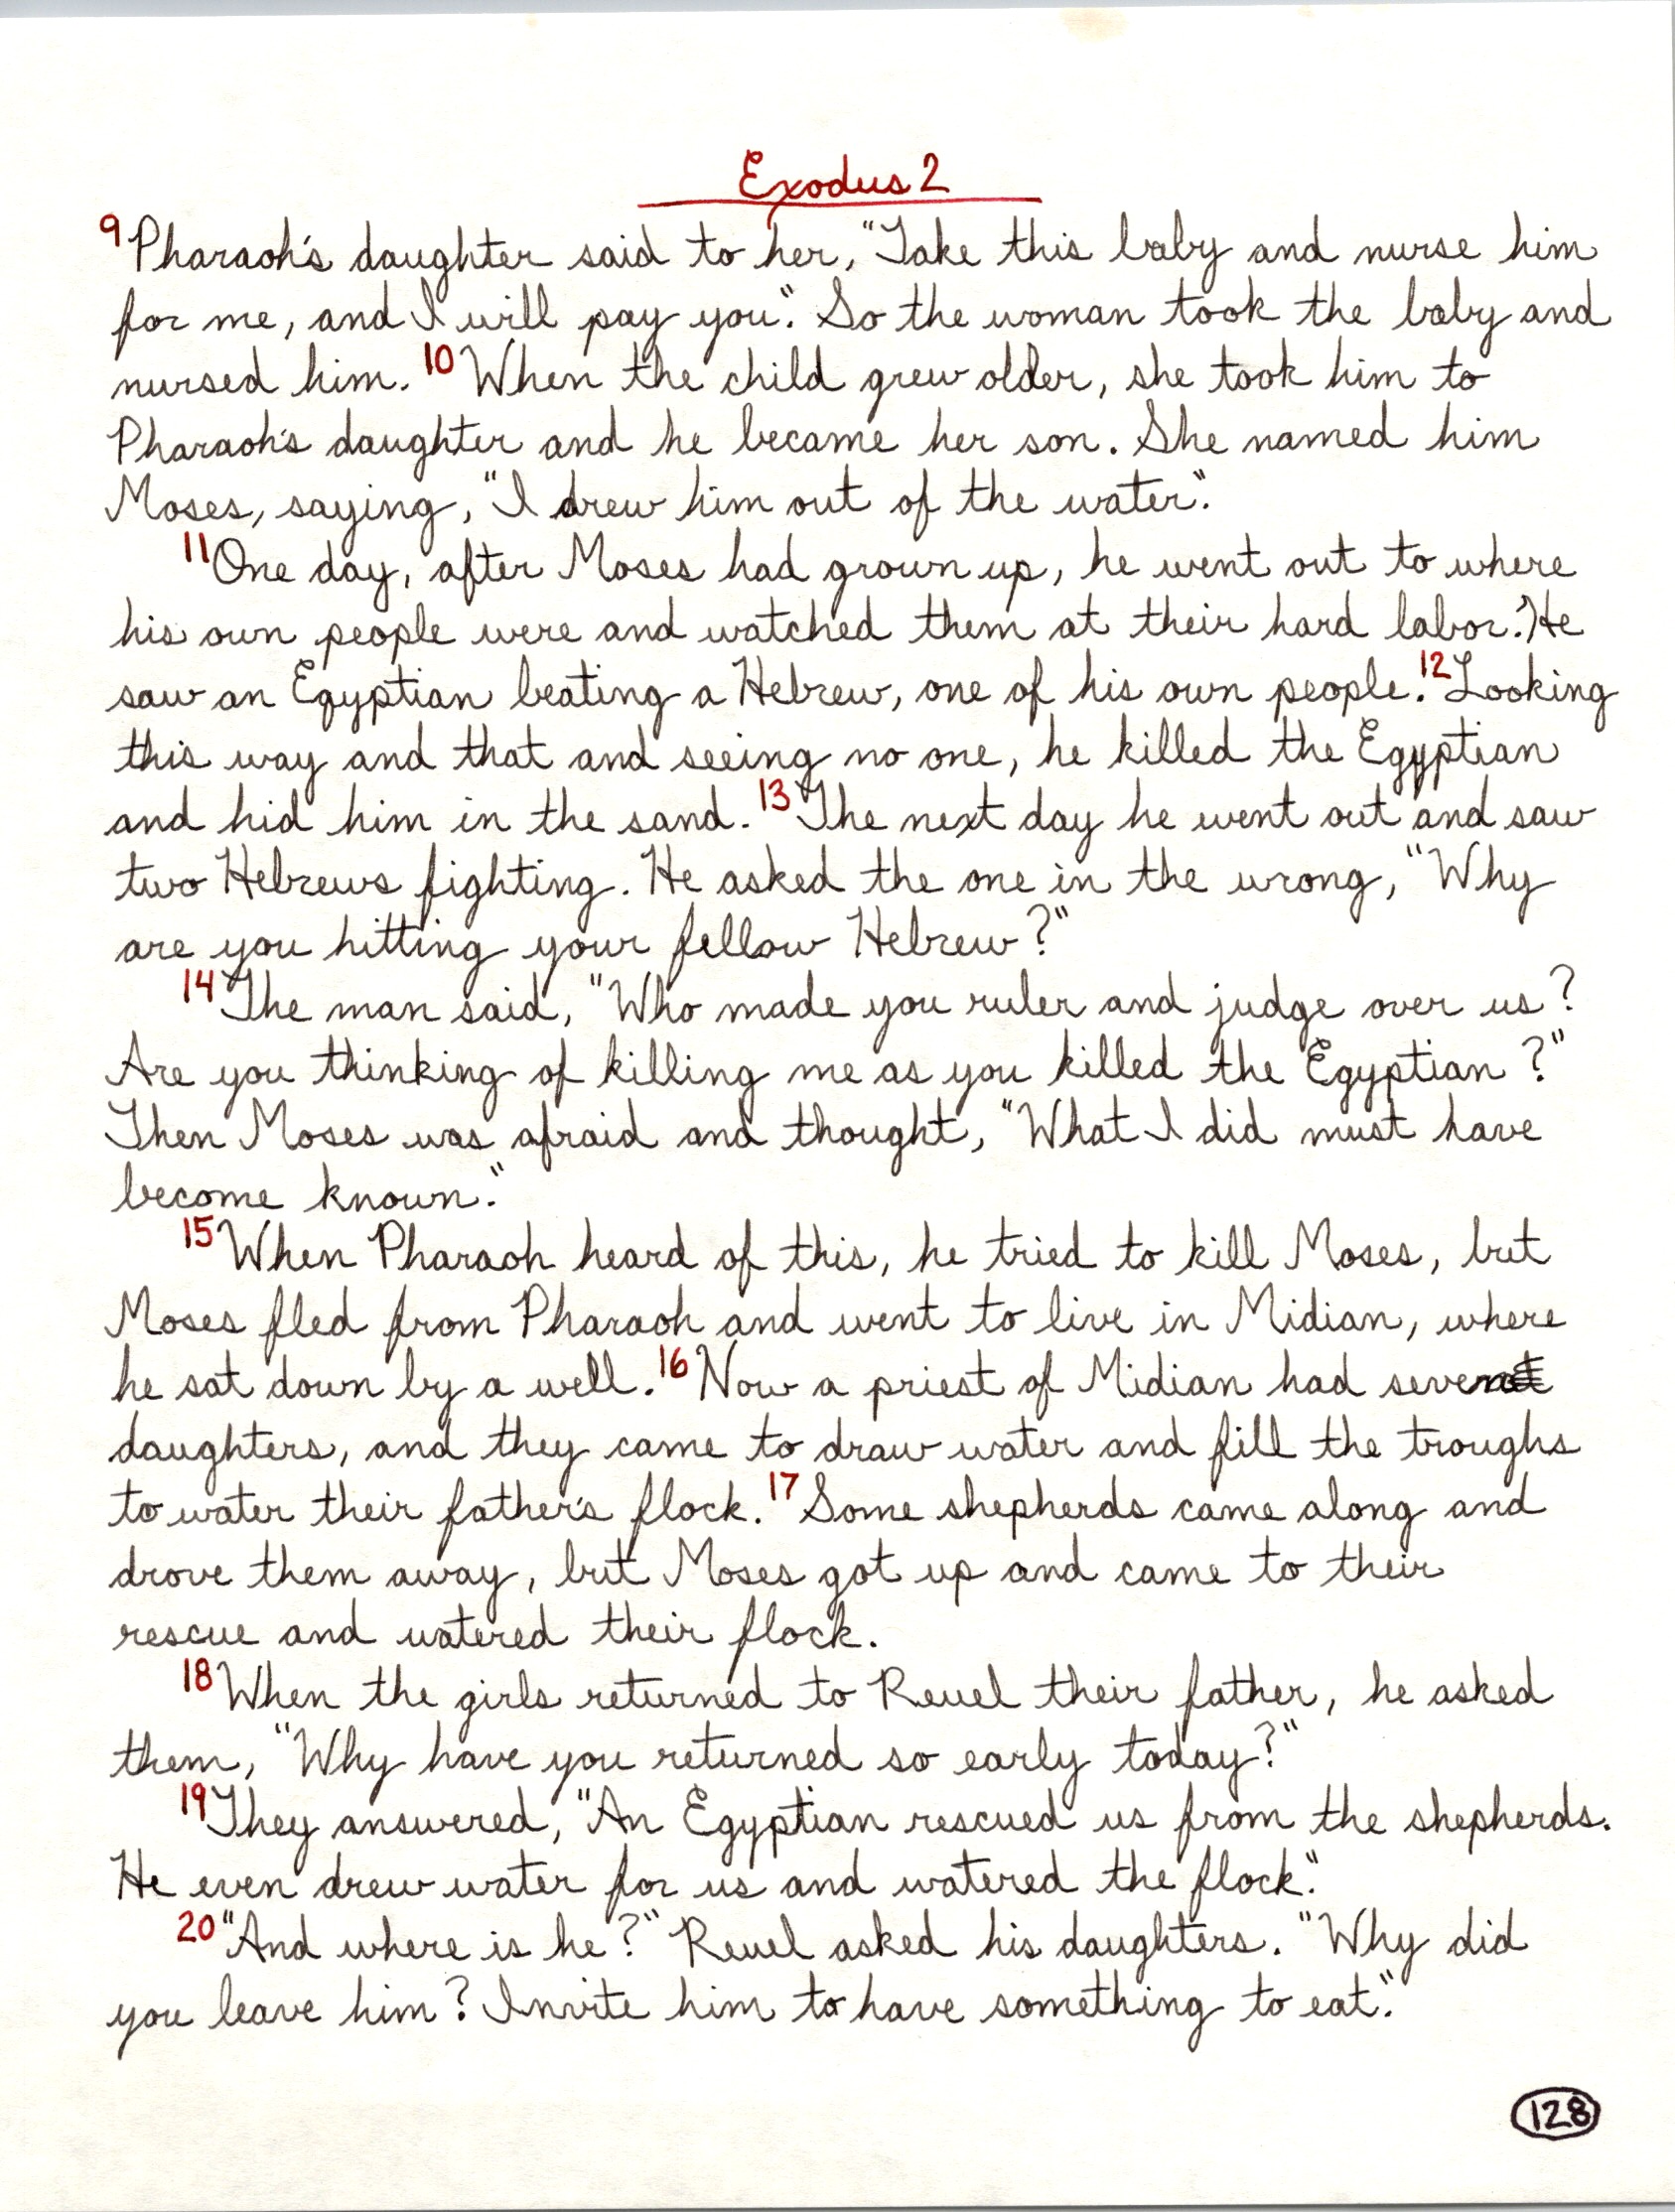 Exodus 2
9 Pharaoh's daughter said to her, "Take this baby and nurse him
for me, and I will pay you." So the woman took the baby and
nursed him. 10 When the child grew older, she took him to
Pharaoh's daughter and he became her son. She named him
Moses, saying, "I drew him out of the water."
11 One day, after Moses had grown up, he went out to where
his own people were and watched them at their hard labor. He
saw an Egyptian beating a Hebrew, one of his own people. 12 Looking
this way and that and seeing no one, he killed the Egyptian
and hid him in the sand. 13 The next day he went out and saw
two Hebrews fighting. He asked the one in the wrong, "Why
are you hitting your fellow Hebrew?"
14 The man said, "Who made you ruler and judge over us?
Are you thinking of killing me as you killed the Egyptian?"
Then Moses was afraid and thought, "What I did must have
become known."
15 When Pharaoh heard of this, he tried to kill Moses, but
Moses fled from Pharaoh and went to live in Midian, where
he sat down by a well. 16 Now a priest of Midian had seven
daughters, and they came to draw water and fill the troughs
to water their father's flock. 17 Some shepherds came along and
drove them away, but Moses got up and came to their
rescue and watered their flock.
18 When the girls returned to Reuel their father, he asked
them, "Why have you returned so early today?"
19 They answered, "An Egyptian rescued us from the shepherds.
He even drew water for us and watered the flock."
20 "And where is he?" Reuel asked his daughters. "Why did
you leave him? Invite him to have something to eat."
128